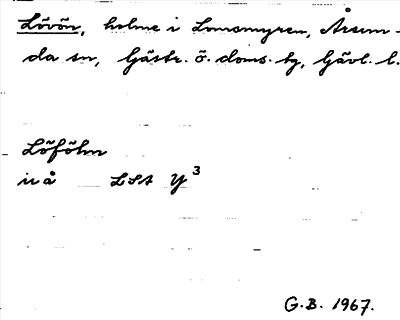 Lövön, holme i Lomsmyren, Årsun-
da sn, Gästr. ö. doms. tg, Gävl. l.
Löföhn
u å LSA Y3
G.B. 1967.